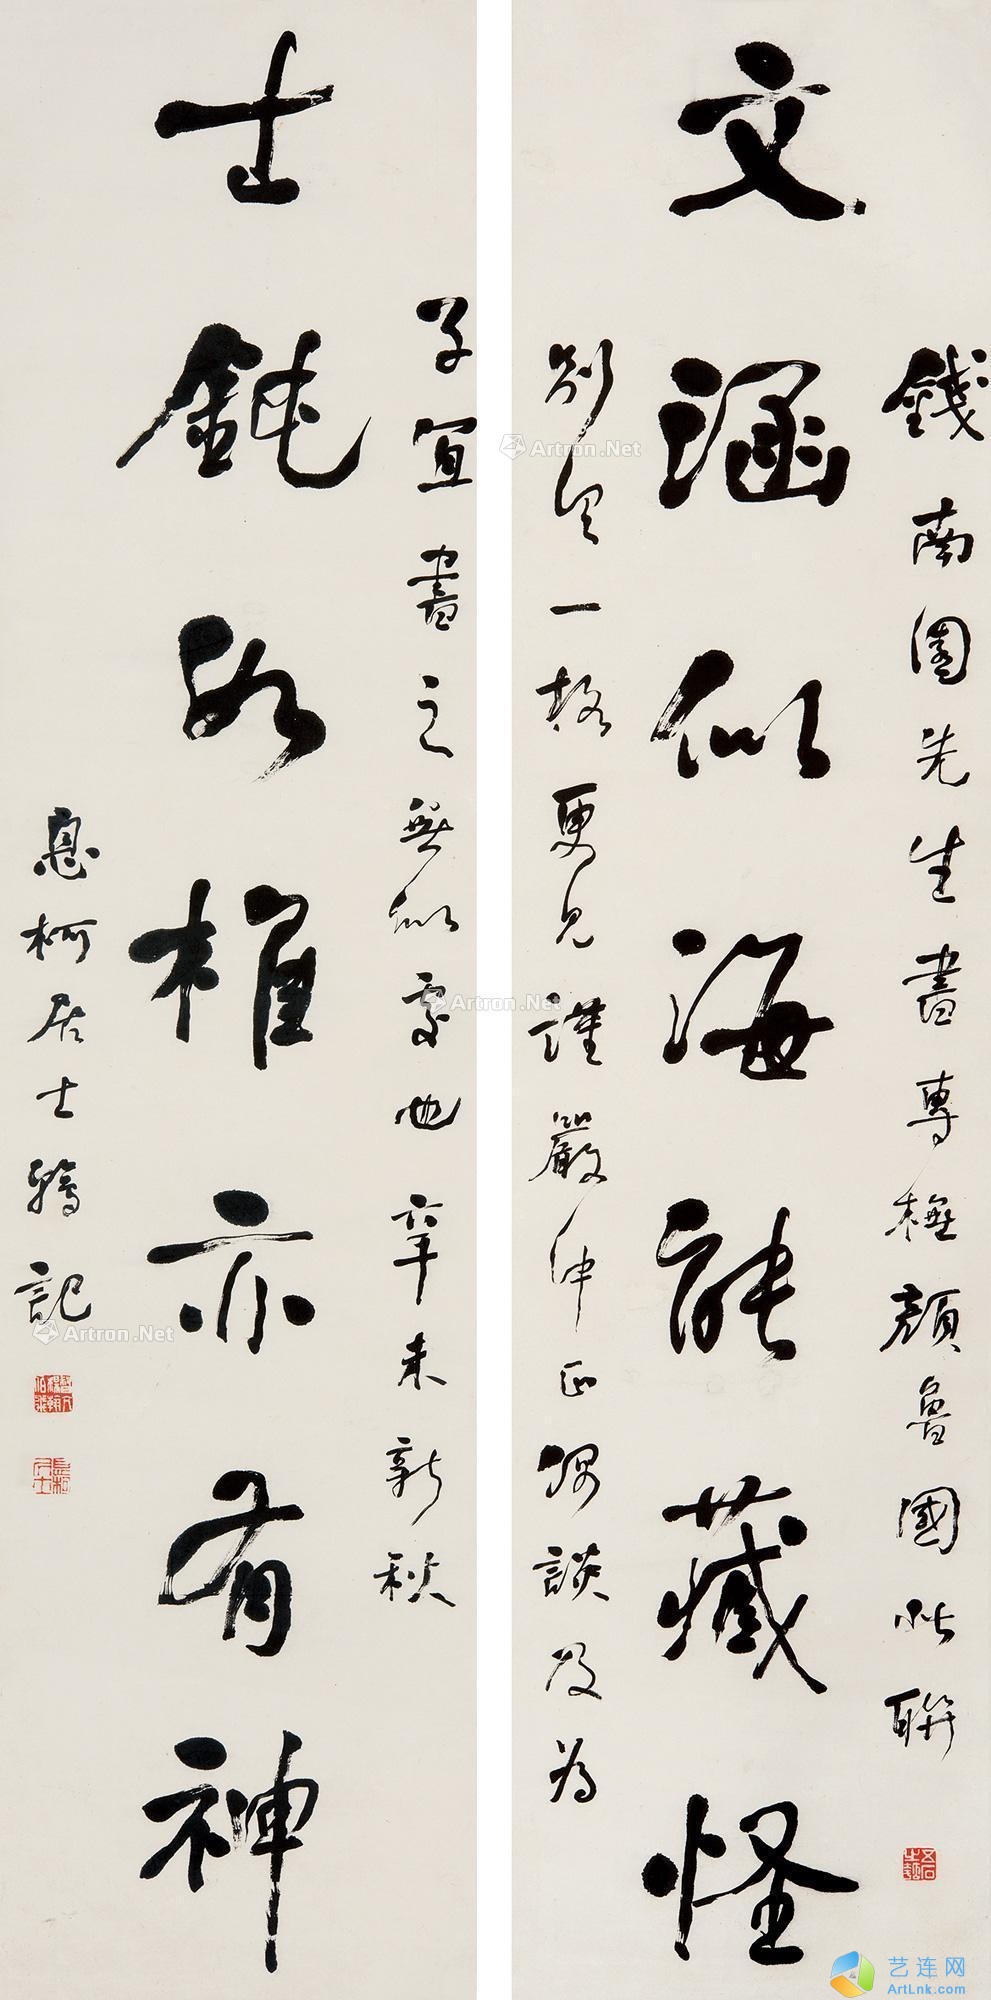 文涵似海能藏怪
錢南園先生書專橅顏魯國此聯
別具一格更見謹嚴沖正偶談及為
士鈍如椎亦有神
子宜書之無似處也辛未新秋
息柯居士翰記
Artron.Net
Artron.Net
Artron.Net
艺连网
ArtLnk.com